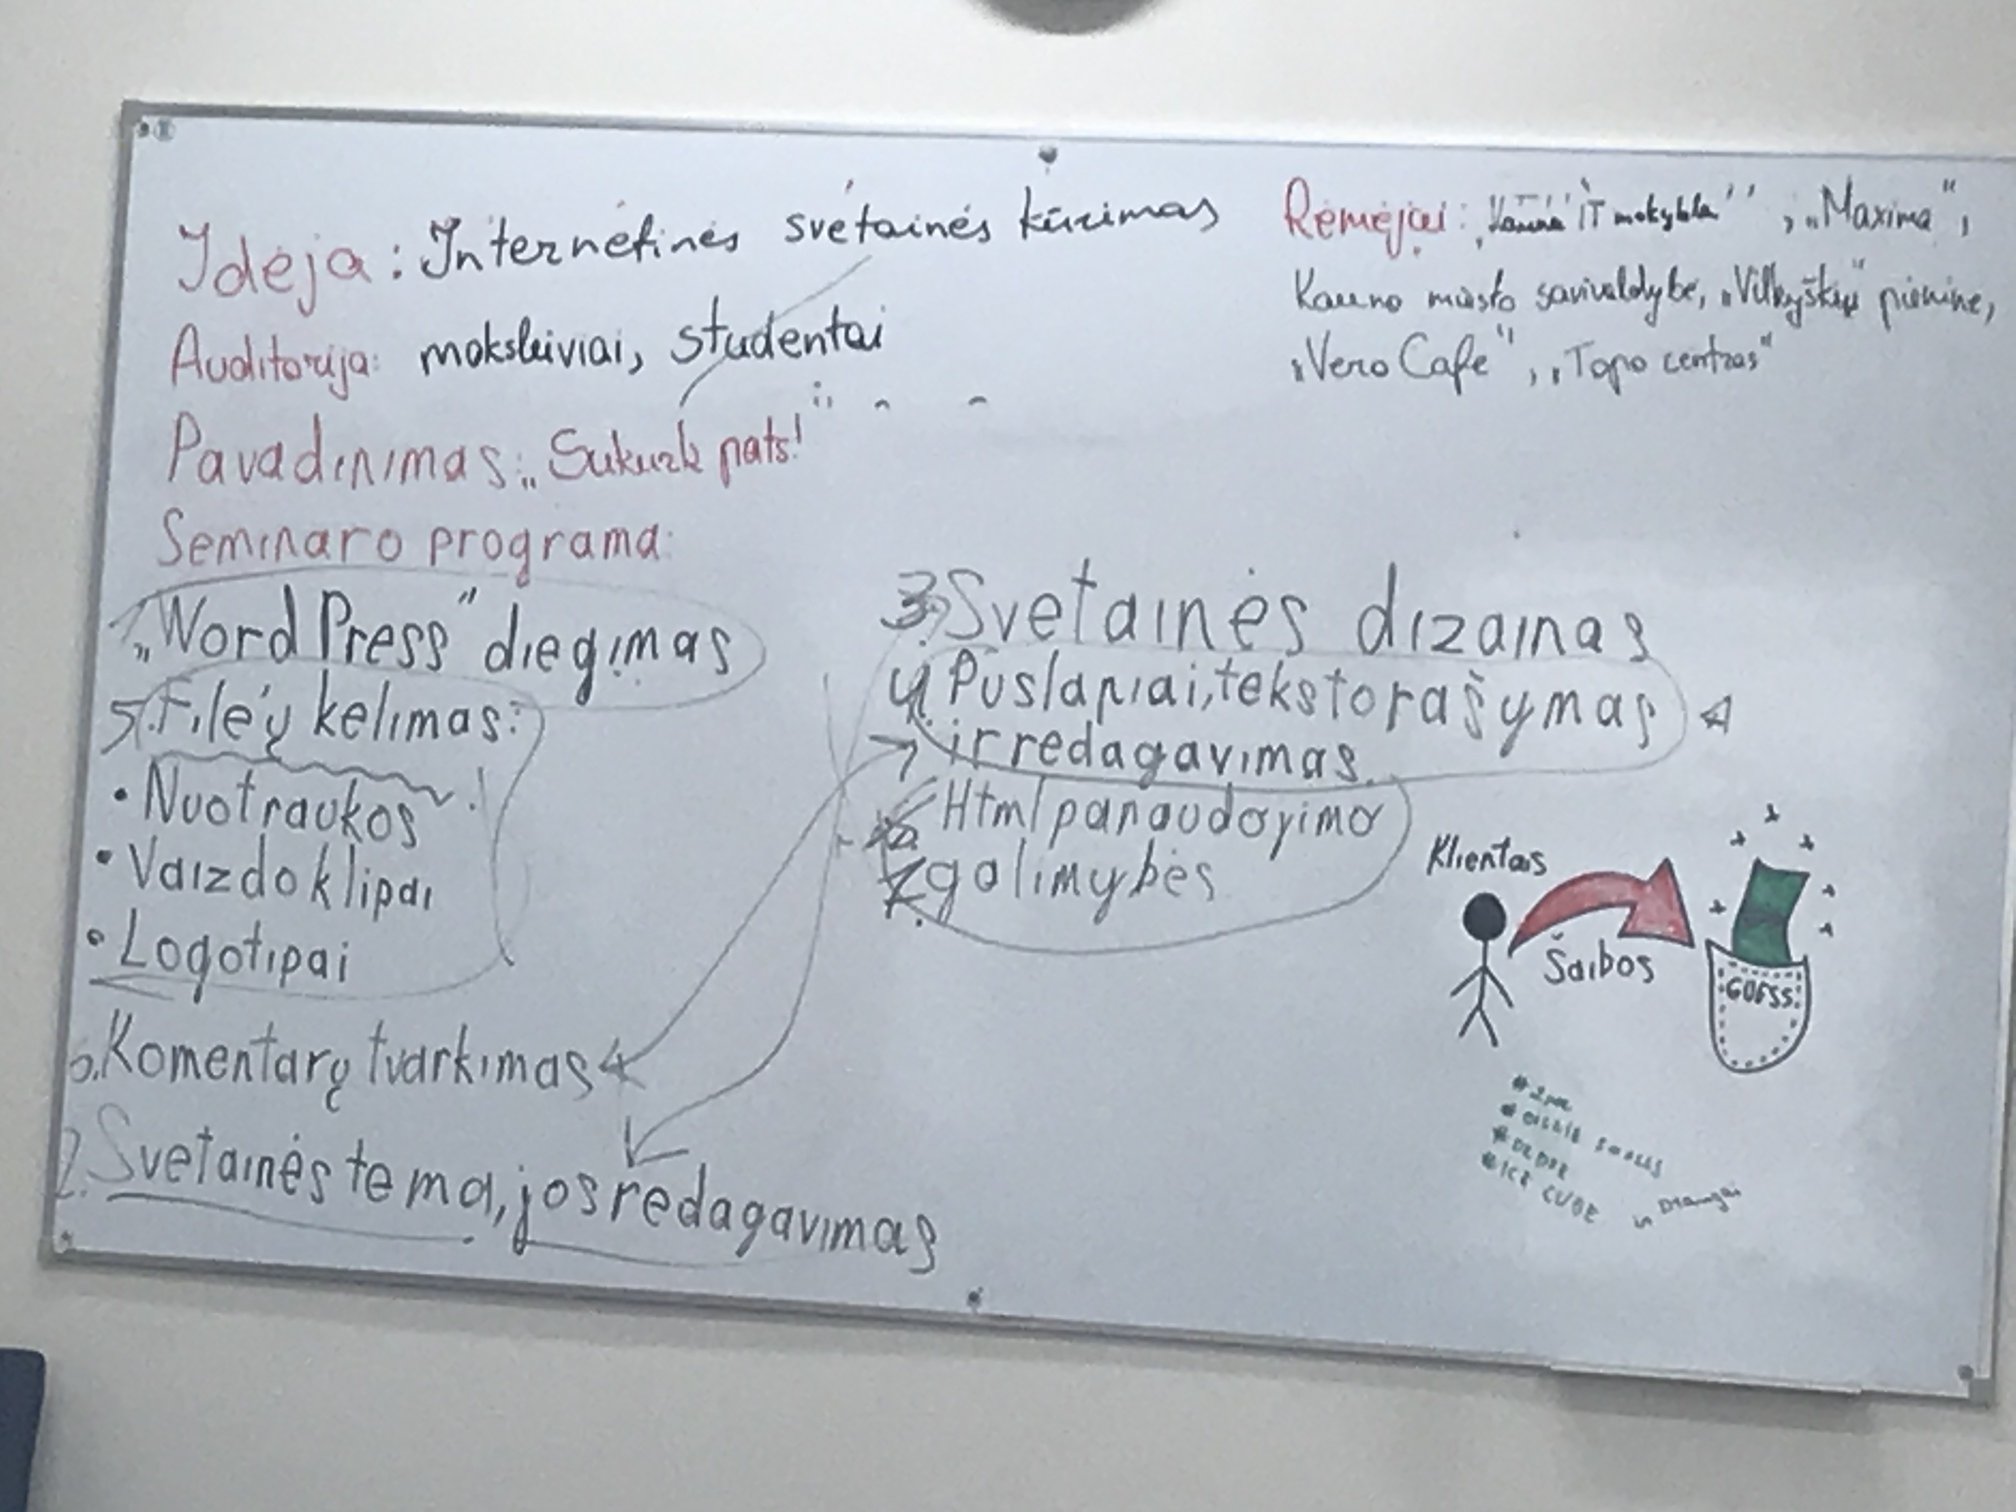 Idėja: Internetinės svetainės kūrimas
Auditorija: moksleiviai, studentai
Pavadinimas: „Sukurk pats!"
Seminaro programa:
1. „WordPress" diegimas
5. File'ų kėlimas:
• Nuotraukos
• Vaizdo klipai
• Logotipai
6. Komentarų tvarkimas
2. Svetainės tema, jos redagavimas
Rėmėjai: IT mokykla", „Maxima",
Kauno miesto savivaldybė, „Vilkyškių" pieninė,
„Vero Cafe", „Topo centras"
3. Svetainės dizainas
4. Puslapiai, teksto rašymas
ir redagavimas
Html panaudojimo
7. galimybės
Klientas
Šaibos
GUESS
#2pac
#DR DRE
#ICE CUBE